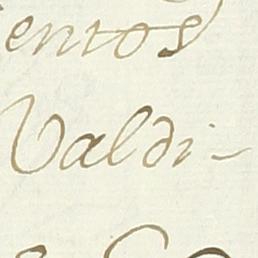 entos
Valdi-